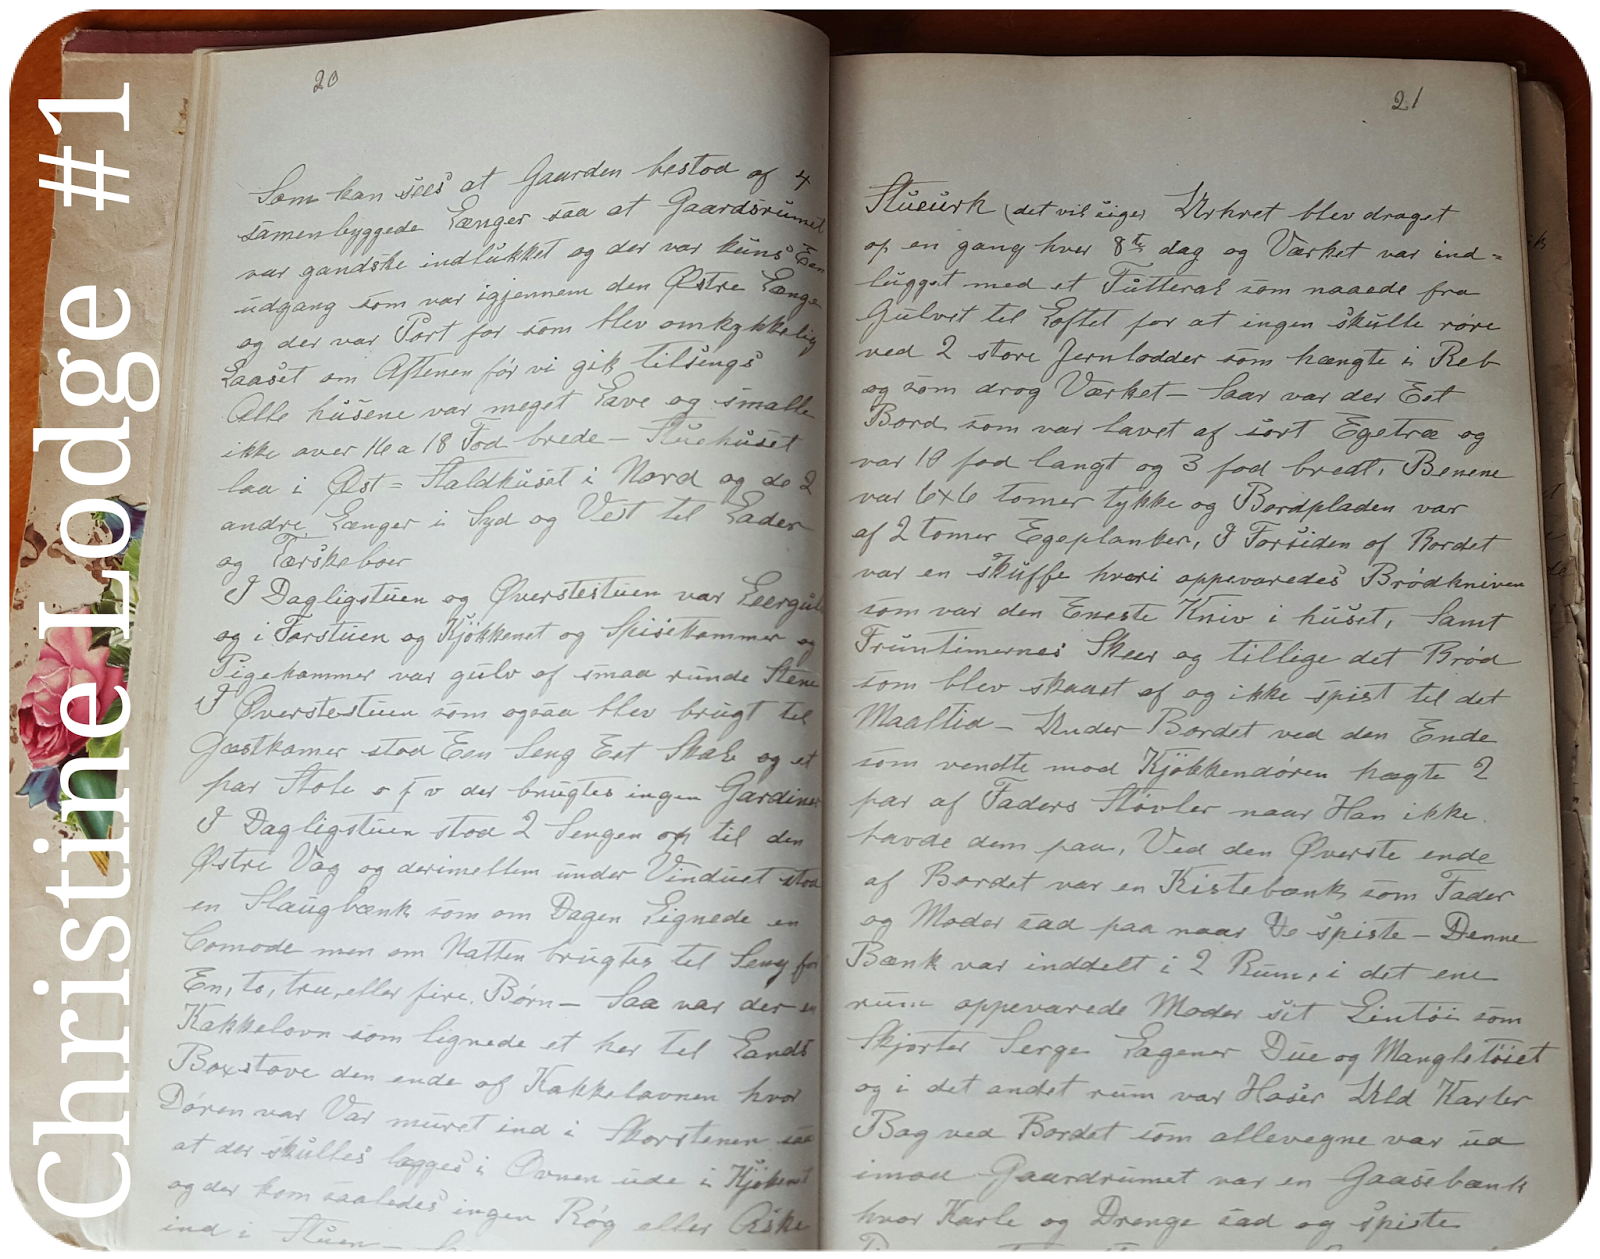 Christine Lodge #1
20
Som kan sees at Gaarden bestod af 4
samenbyggede Længer saa at Gaardsrumet
var gandske indlukket og der var kuns Een
udgang som var igjennem den Østre Længe
og der var Port for som blev omhykkelig
Laaset om Aftenen før vi gik tilsengs
Alle husene var meget Lave og smalle
ikke over 16 a 18 Fod brede - Stuehuset
laa i Øst = Staldhuset i Nord og de 2
andre Længer i Syd og Vest til Lader
og Tærskeloer
I Dagligstuen og Øverstestuen var Leergulv
og i Forstuen og Kjøkkenet og Spisekammer og
Pigekammer var gulv af smaa runde Stene
I Øverstestuen som ogsaa blev brugt til
Gæstkamer stod Een Seng Eet Skab og et
par Stole o f v der brugtes ingen Gardiner
I Dagligstuen stod 2 Sengen op til den
Østre Vag og derimellem under Vinduet stod
en Slaugbænk som om Dagen Lignede en
Comode men om Natten brugtes til Seng for
En, to, tre, eller fire. Børn - Saa var der en
Kakkelovn som lignede et her til Lands
Boxstove den ende af Kakkelovnen hvor
Døren var Var muret ind i Skorstenen saa
at der skulles lægges i Ovnen ude i Kjøkenet
og der kom saaledes ingen Røg eller Aske
ind i Stuen -
21
Stueurk (det vil siger Urkret blev draget
op en gang hver 8te dag og Værket var ind=
lugget med et Futteral som naaede fra
Gulvet til Loftet for at ingen skulle røre
ved 2 store Jernlodder som hængte i Reb
og som drog Værket - Saar var der Eet
Bord som var lavet af sort Egetræ og
var 10 fod langt og 3 fod bredt. Benene
var 6x6 tomer tykke og Bordpladen var
af 2 tomer Egeplanker, I Forsiden af Bordet
var en skuffe hvori oppevaredes Brødkniven
som var den Eneste Kniv i huset, Samt
Fruntimernes Skeer og tillige det Brød
som blev skaaet af og ikke spist til det
Maaltid - Under Bordet ved den Ende
som vendte mod Kjøkkendøren hægte 2
par af Faders Støvler naar Han ikke
havde dem paa. Ved den Øverste ende
af Bordet var en Kistebænk som Fader
og Moder sad paa naar De spiste - Denne
Bænk var inddelt i 2 Rum, i det ene
rum oppevarede Moder sit Lintøi som
Skjorter Serge Lagener Due og Mangletøiet
og i det andet rum var Hoser Uld Karter
Bag ved Bordet som allevegne var ud
imod Gaardrumet var en Gaasebænk
hvor Karle og Drenge sad og spiste